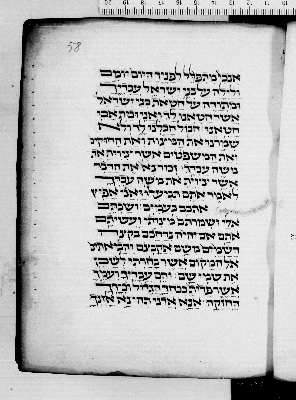 58
אנכי מתפלל לפניך היום יומם
ולילה על בני ישראל עבדיך
ומתודה על חטאות בני ישראל
אשר חטאנו לך ואני ובית אבי
חטאנו חבול חבלנו לך ולא
שמרנו את המצות ואת החוקים
ואת המשפטים אשר צוית את
משה עבדך זכור נא את הדבר
אשר צוית את משה עבדך
לאמר אתם תמעלו אני אפיץ
אתכם בעמים ושבתם
אלי ושמרתם מצותי ועשיתם
אתם אם יהיה נדחכם בקצה
השמים משם אקבצם והביאותים
אל המקום אשר בחרתי לשכן
את שמי שם והם עבדיך ועמך
אשר פדית בכחך הגדול ובידך
החזקה אנא אדני תהי נא אזנך